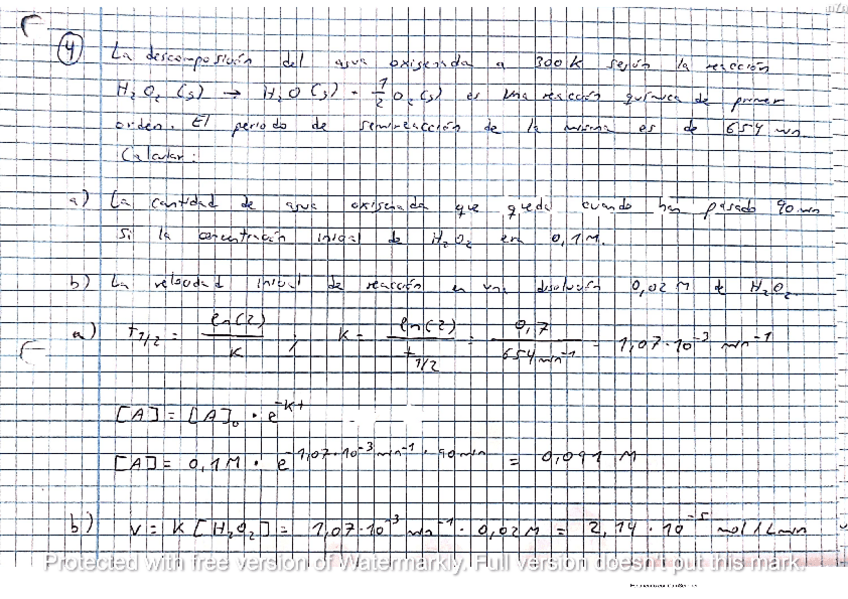 4) La descomposición del agua oxigenada a 300 K según la reacción
H₂O₂ (g) → H₂O (g) + 1/2 O₂ (g) es una reacción química de primer
orden. El periodo de semireacción de la misma es de 654 min.
Calcular:
a) La cantidad de agua oxigenada que queda cuando han pasado 90 min
si la concentración inicial de H₂O₂ era 0,1 M.
b) La velocidad inicial de reacción en una disolución 0,02 M de H₂O₂.
a) t1/2 = ln(2)/K ; K = ln(2)/t1/2 = 0,7/654 min⁻¹ = 1,07·10⁻³ min⁻¹
[A] = [A]₀ · e^-Kt
[A] = 0,1 M · e^-1,07·10⁻³ min⁻¹ · 90 min = 0,091 M
b) v = K [H₂O₂] = 1,07·10⁻³ min⁻¹ · 0,02 M = 2,14 · 10⁻⁵ mol / L min
Protected with free version of Watermarkly. Full version doesn't put this mark.